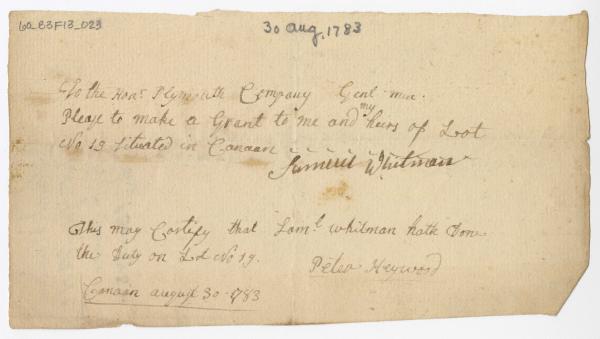 6a_B3F13_023
30 Aug, 1783
To the Honr Plymouth Company Gentmen.
Please to make a Grant to me and my heirs of Lot
No 19 Situated in Canaan
Samuel Whitman
This may Certify that Saml Whitman hath Done
the Duty on Lot No 19.
Peter Heywood
Canaan august 30 - 1783